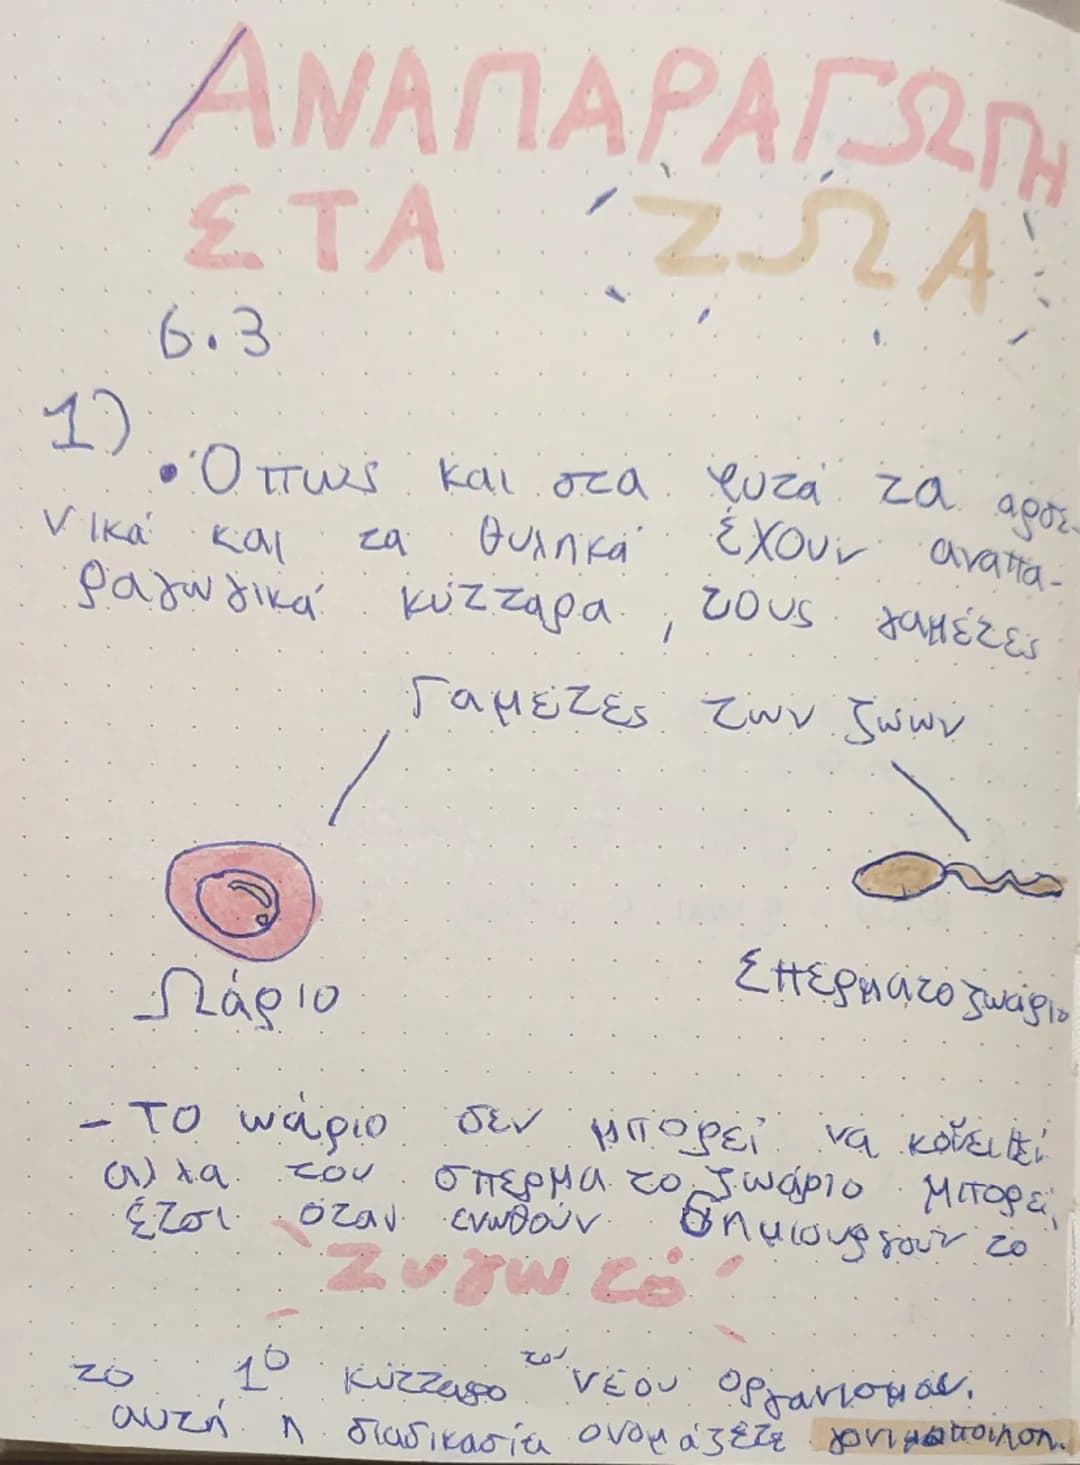 ΑΝΑΠΑΡΑΓΩΓΗ
ΣΤΑ ΖΩΑ
6.3
1)
• Όπως και στα φυτά τα αρσε-
νικά και τα θυληκά έχουν αναπα-
ραγωγικά κύτταρα, τους γαμέτες
Γαμετες των ζώων
Ωάριο
Σπερματοζωάριο
- Το ωάριο δεν μπορεί να κοινειθεί
αλλα του σπερματοζωάριο μπορεί,
έτσι όταν ενωθούν δημιουργούν το
Ζυγωτό
το 1ο κύτταρο του νέου οργανισμου.
αυτή η διαδικασία ονομάζετε γονιμοποίηση.